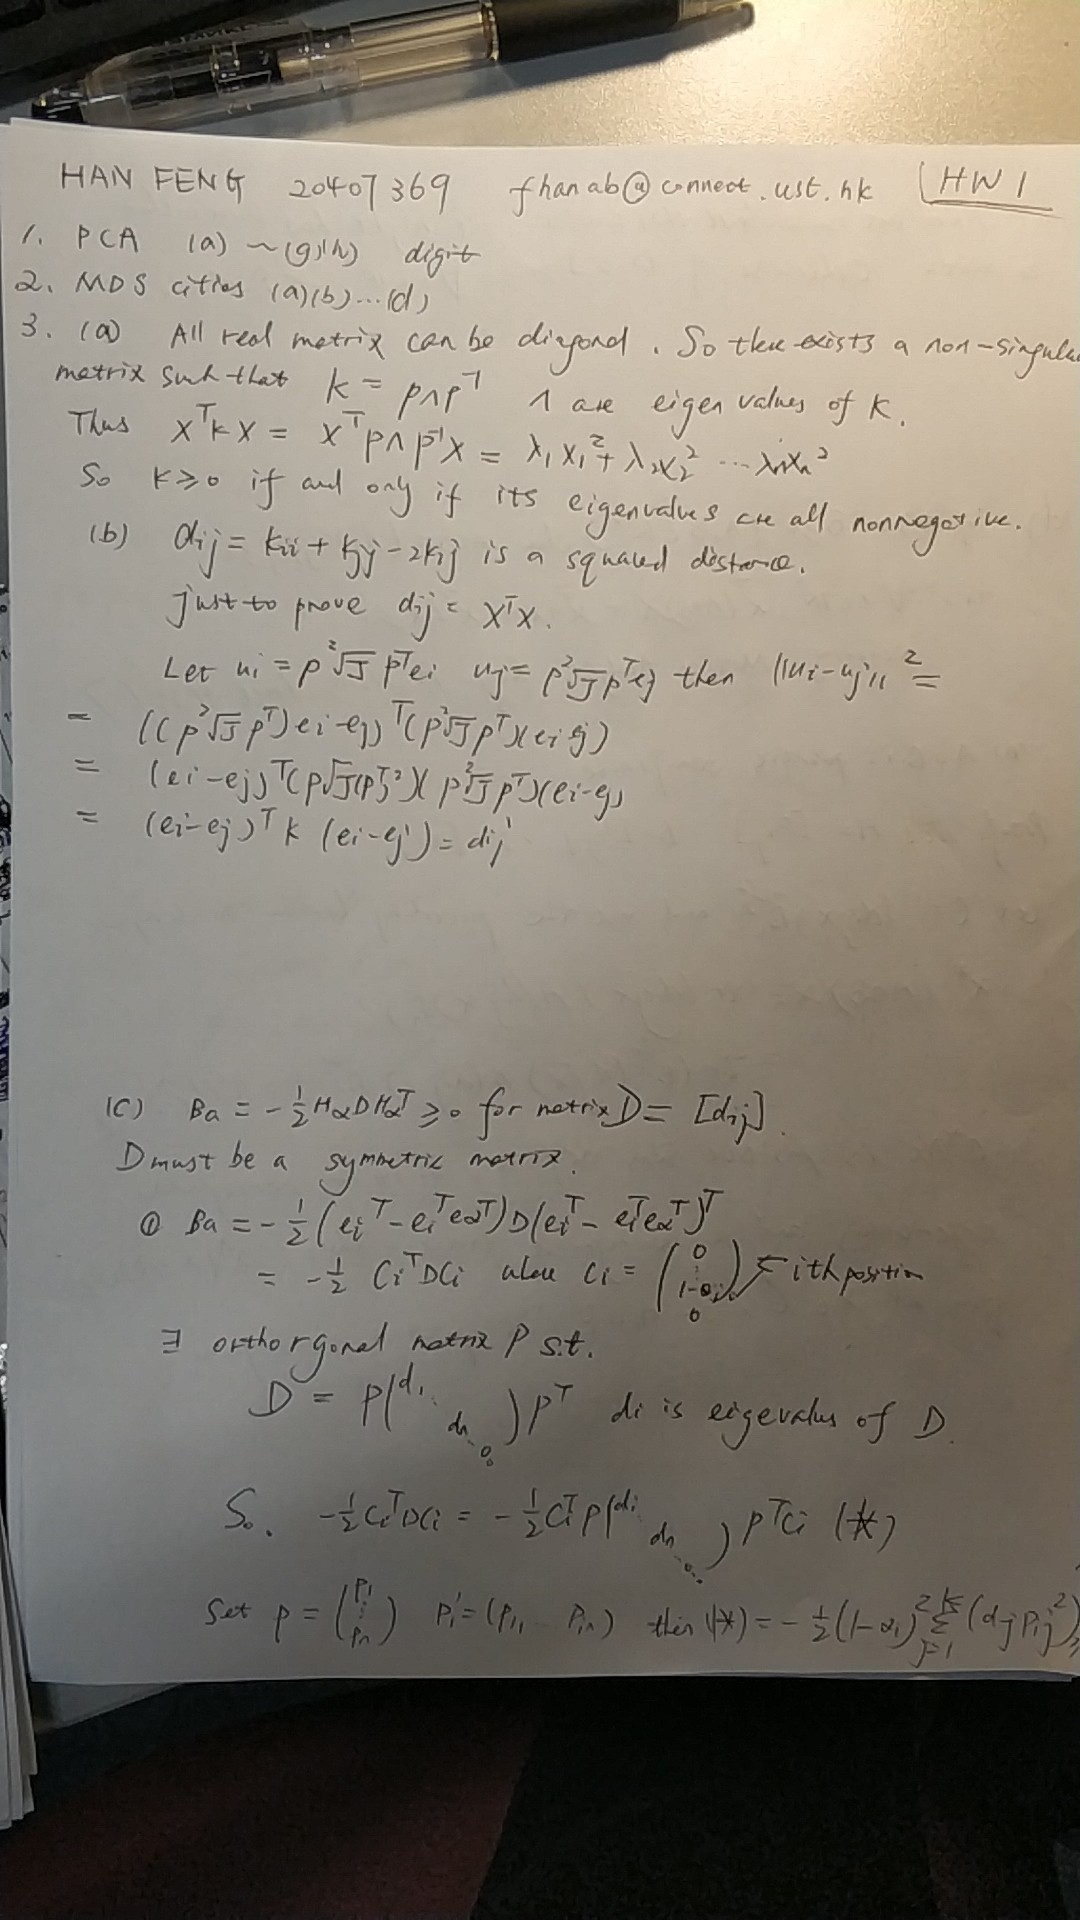 HAN FENG 20407369 fhanab@connect.ust.hk HW1
1. PCA (a) ~(g)(h) digit
2. MDS cities (a)(b)...(d)
3. (a) All real matrix can be diagonal. So there exists a non-singular
matrix such that k = pΛp⁻¹ Λ are eigen values of K.
Thus xᵀkx = xᵀpΛp⁻¹x = λ₁x₁² + λ₂x₂² ... λₙxₙ²
So k≥0 if and only if its eigenvalues are all nonnegative.
(b) dij = kii + kjj - 2kij is a squared distance.
just to prove dij = xᵀx.
Let ui = p ²√J pᵀei uj = p ²√J pᵀej then ||ui-uj||² =
= ((p ²√J pᵀ) ei-ej)ᵀ(p ²√J pᵀ)(ei-ej)
= (ei-ej)ᵀ(p√J(pᵀ)²)(p ²√J pᵀ)(ei-ej)
= (ei-ej)ᵀ k (ei-ej) = dij
(c) Ba = -½HαDHαᵀ ≥ 0 for matrix D = [dij].
D must be a symmetric matrix.
① Ba = -½(eiᵀ-eiᵀeαᵀ)D(eiᵀ-eiᵀeαᵀ)ᵀ
= -½ CiᵀDCi where Ci = ith position
∃ orthorgonal matrix P s.t.
D = P(d₁ ⋱ dn ⋱ 0)Pᵀ di is eigevalus of D.
So. -½CiᵀDCi = -½CiᵀP(di dn ⋱)PᵀCi (*)
Set p = (p₁ ⋮ pn) pi' = (pi, ... pin) then (*) = -½(1-αi)² Σ j=1 (dj pij²)